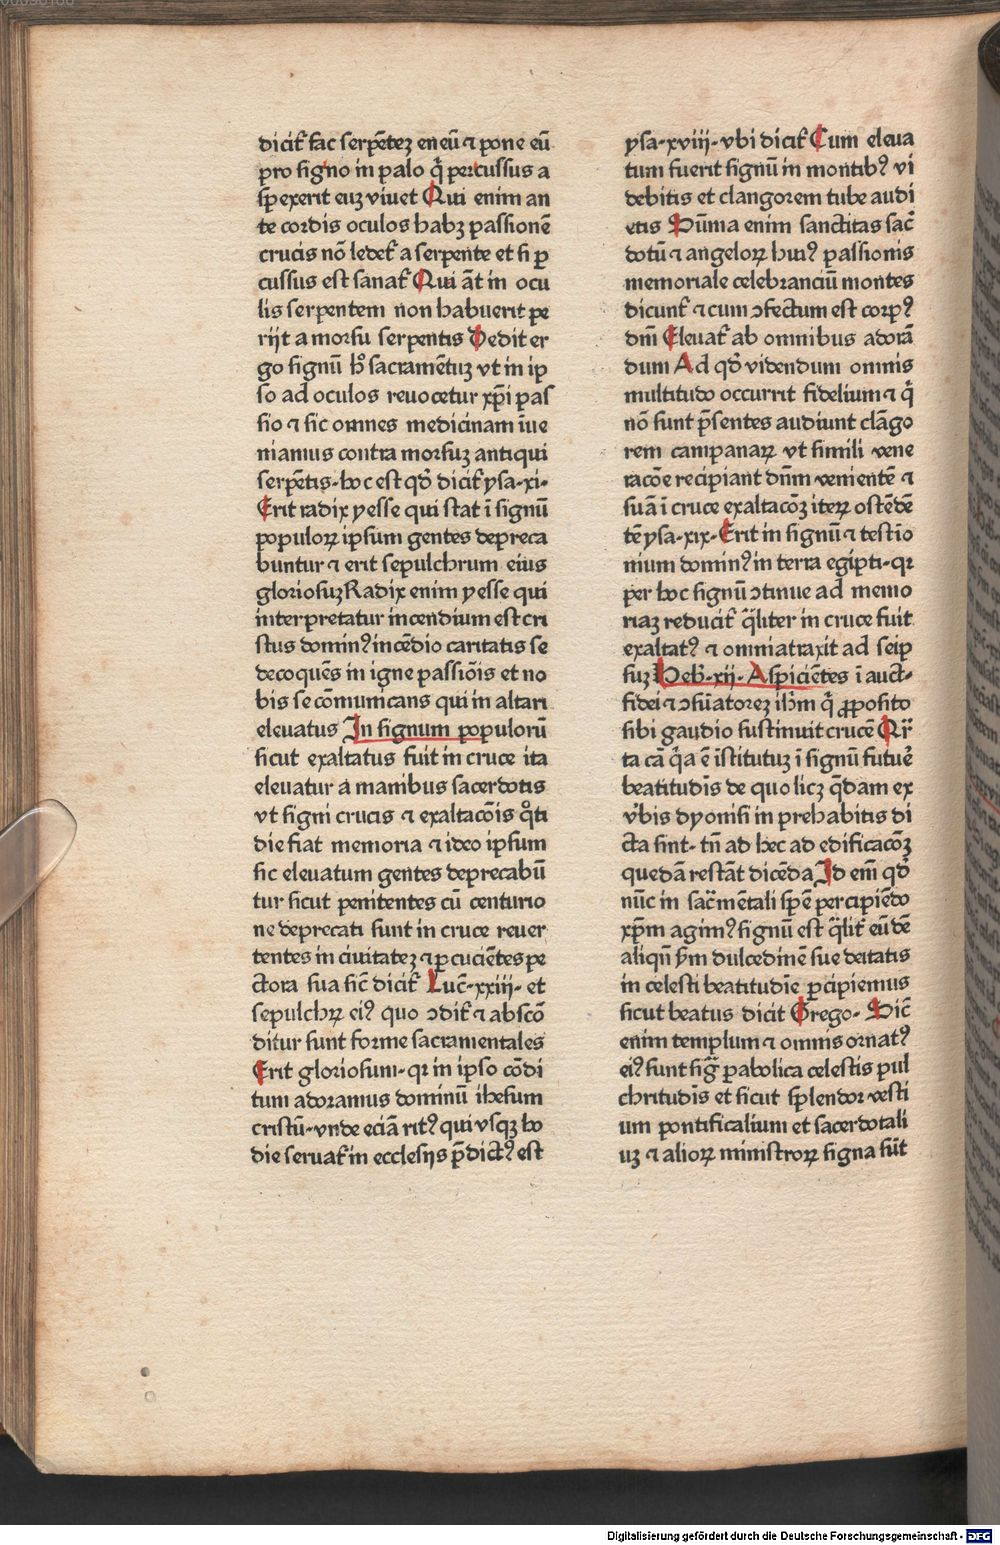 dicit᷑ fac serpētez eneū ⁊ pone eū
pro signo in palo q̄ percussus a
spexerit euʒ viuet Qui enim an
te cordis oculos habʒ passionē
crucis nō ledet᷑ a serpente et si ꝑ
cussus est sanat᷑ Qui āt in ocu
lis serpentem non habuerit pe
rijt a morsu serpentis Dedit er
go signū hᵒ sacramētuʒ vt in ip
so ad oculos reuocetur xp̄i pas
sio ⁊ sic omnes medicinam īue
niamus contra morsuʒ antiqui
serpētis·hoc est qd̄ dicit᷑ ysa·xi·
Erit radix yesse qui stat ī signū
populoꝝ ipsum gentes depreca
buntur ⁊ erit sepulchrum eius
gloriosuʒ Radix enim yesse qui
interpretatur incendium est cri
stus dominꝰ incēdio caritatis se
decoquēs in igne passiōis et no
bis se cōmunicans qui in altari
eleuatus In signum populorū
sicut exaltatus fuit in cruce ita
eleuatur a manibus sacerdotis
vt signi crucis ⁊ exaltacōis q̊ti
die fiat memoria ⁊ ideo ipsum
sic eleuatum gentes deprecabū
tur sicut penitentes cū centurio
ne deprecati sunt in cruce reuer
tentes in ciuitateʒ ⁊ ꝑcuciētes pe
ctora sua sic̄ dicit᷑ Luc̄·xxiij· et
sepulchꝝ eiꝰ quo ↄdit᷑ ⁊ abscō
ditur sunt forme sacramentales
Erit gloriosum·qr in ipso cōdi
tum adoramus dominū ihesum
cristū·vnde eciā ritꝰ qui vsqʒ ho
die seruat᷑ in ecclesijs p̄dictꝰ est
ysa·xviij·vbi dicit᷑ Cum eleua
tum fuerit signū in montibꝰ vi
debitis et clangorem tube audi
etis Sūma enim sanctitas sac̄
dotū ⁊ angeloꝝ huiꝰ passionis
memoriale celebranciū montes
dicunt᷑ ⁊ cum ↄfectum est corpꝰ
dn̄i Eleuat᷑ ab omnibus adorā
dum Ad qd̄ videndum omnis
multitudo occurrit fidelium ⁊ q̄
nō sunt p̄sentes audiunt clāgo
rem campanaꝝ vt simili vene
racōe recipiant dn̄m venientē ⁊
suā ī cruce exaltacōʒ iteꝝ ostēdē
tē ysa·xix·Erit in signū ⁊ testīo
nium dominꝰ in terra egipti·qr
per hoc signū ↄtinue ad memo
riaʒ reducit᷑ q̄liter in cruce fuit
exaltatꝰ ⁊ omnia traxit ad seip
suʒ Heb̄·xij·Aspiciētes ī auct·
fidei ⁊ ↄsūatoreʒ ih̄m q̄ ꝓposito
sibi gaudio sustinuit crucē Qr̄
ta cā q̄a ē īstitutuʒ ī signū futue᷑
beatitudīs de quo licʒ q̄dam ex
v̄bis dyonisi in prehabitis di
cta sint·tn̄ ad hec ad edificacōʒ
quedā restāt dicēda Id em̄ qd̄
nūc in sac̄mētali spē percipiēdo
xp̄m agimꝰ signū est q̄lit᷑ eūdē
aliqn̄ ẜm dulcedinē sue deitatis
in celesti beatitudīe ꝑcipiemus
sicut beatus dicit Grego· Dic̄
enim templum ⁊ omnis ornatꝰ
eiꝰ sunt fig᷑ ꝑabolica celestis pul
chritudīs et sicut splendor vesti
um pontificalium et sacerdotali
uʒ ⁊ alioꝝ ministroꝝ signa sūt
Digitalisierung gefördert durch die Deutsche Forschungsgemeinschaft - DFG